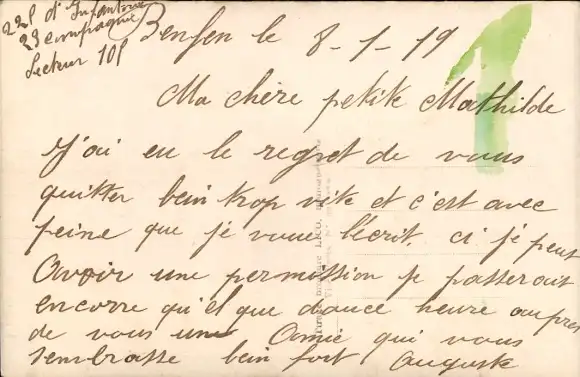 225 d'Infanterie
23 compagnie
Secteur 101
Benfen le 8-1-19
Ma chère petite Mathilde
J'ai eu le regret de vous
quitter bein trop vite et c'est avec
peine que je vous l'écrit. ci je peut
Avoir une permission je passerait
encorre qu'el que douce heure aupres
de vous une Amie qui vous
sembrasse bein fort Auguste
1